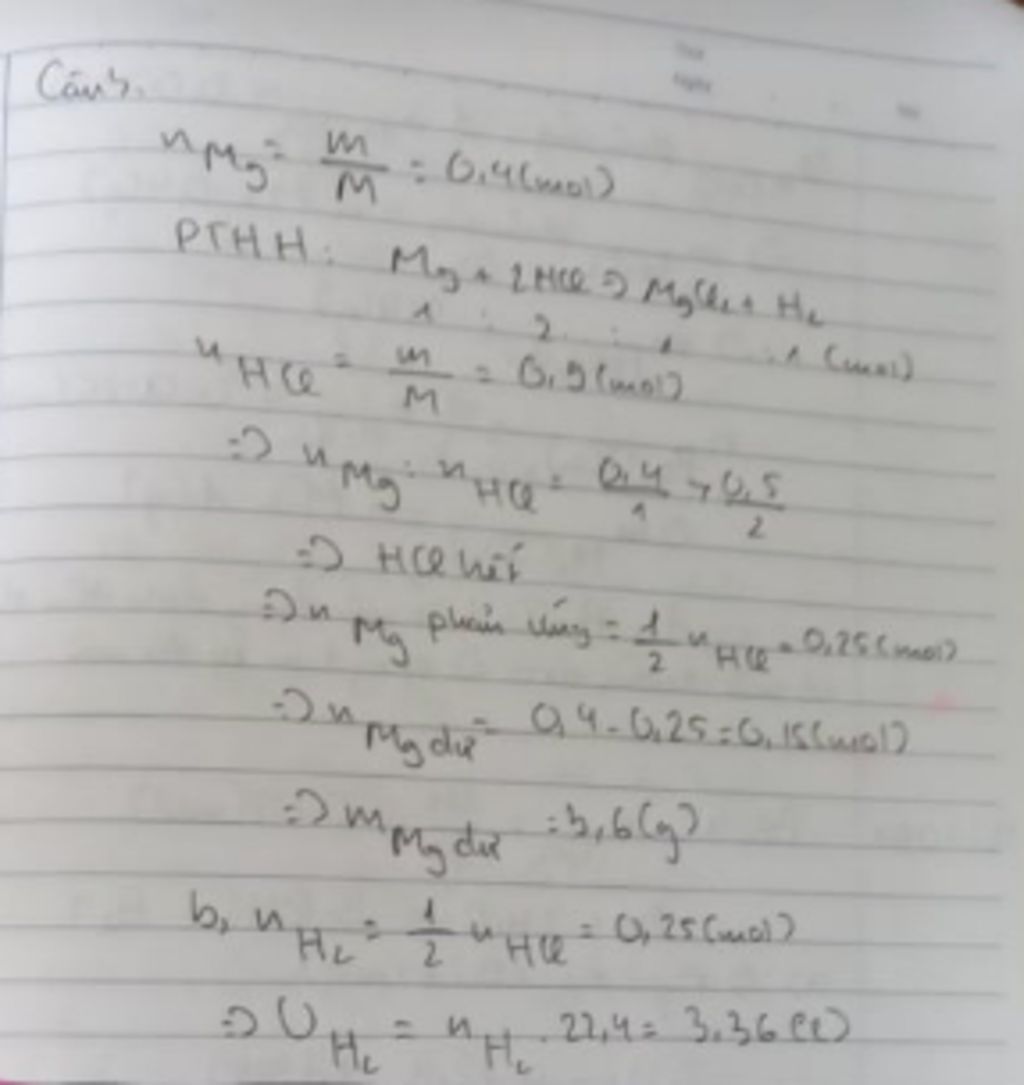 Câu 3.
nMg = m/M = 0,4 (mol)
PTHH: Mg + 2HCl => MgCl2 + H2
1 : 2 : 1 : 1 (mol)
nHCl = m/M = 0,5 (mol)
=> nMg : nHCl = 0,4/1 > 0,5/2
=> HCl hết
=> nMg phản ứng = 1/2 nHCl = 0,25 (mol)
=> nMg dư = 0,4 - 0,25 = 0,15 (mol)
=> mMg dư = 3,6 (g)
b, nH2 = 1/2 nHCl = 0,25 (mol)
=> VH2 = nH2 . 22,4 = 3,36 (l)